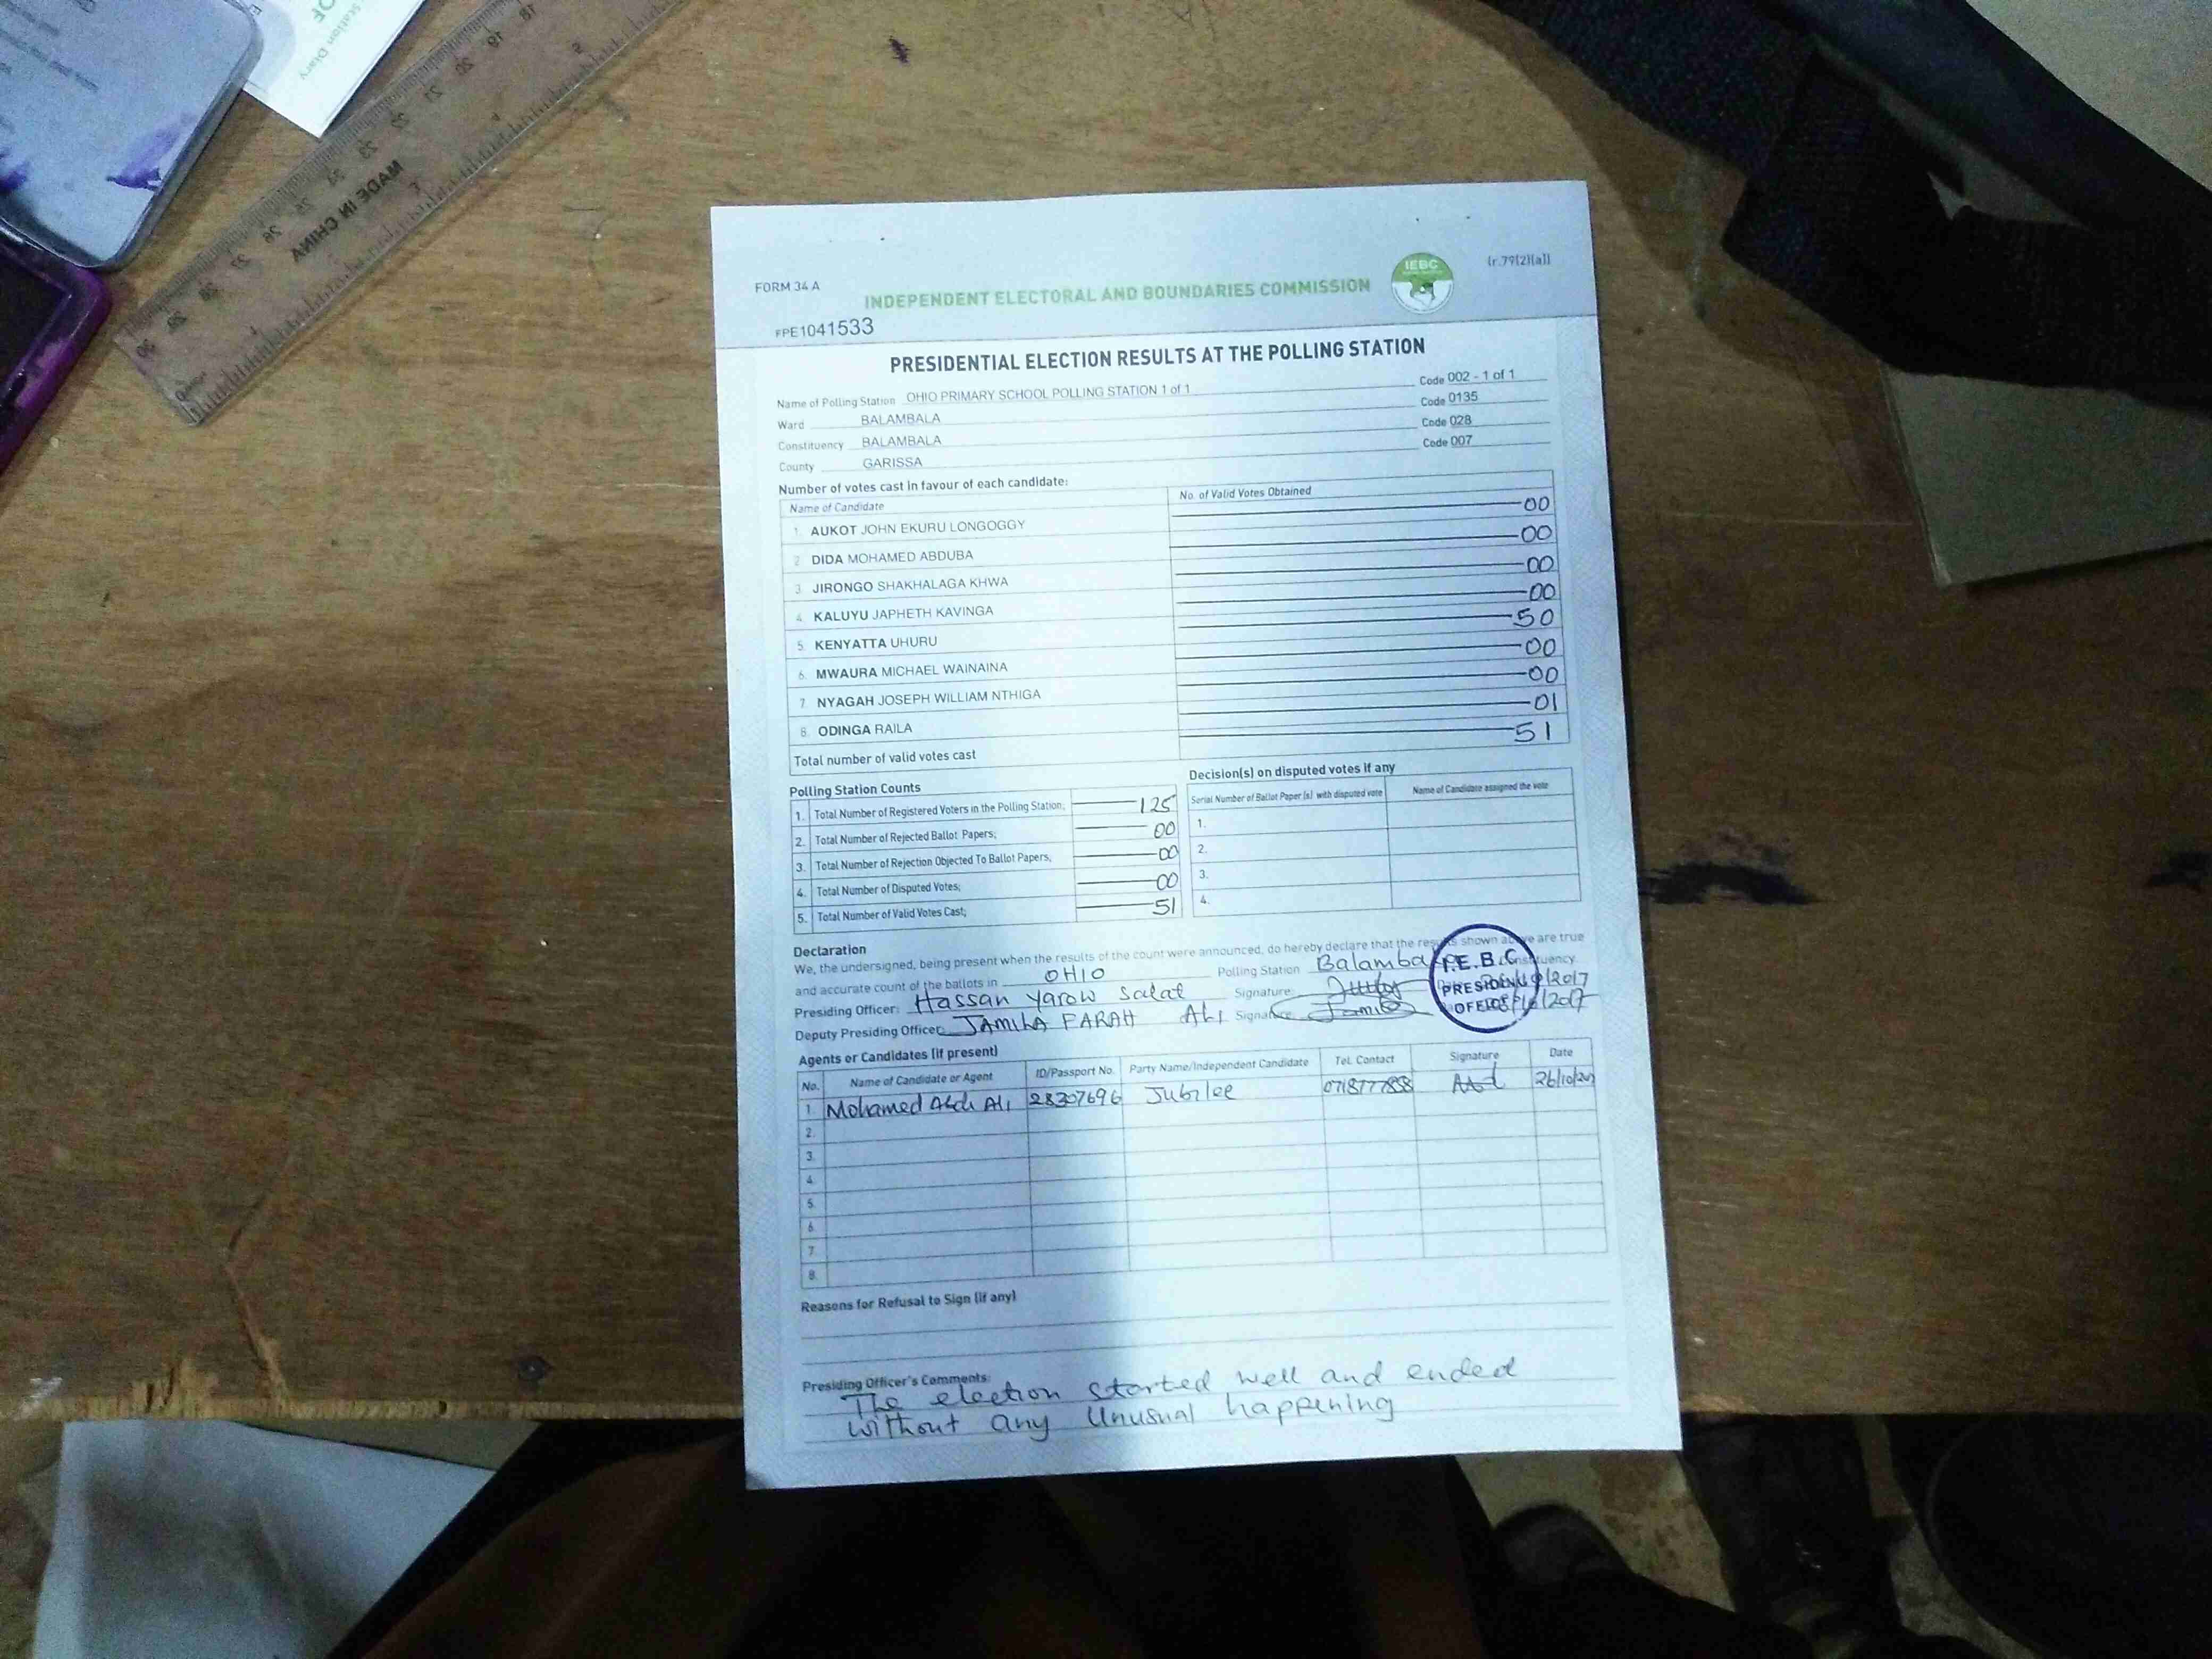 MADE IN CHINA
Station Diary
FORM 34 A
(r.79(2)(a))
INDEPENDENT ELECTORAL AND BOUNDARIES COMMISSION
IEBC
FPE1041533
PRESIDENTIAL ELECTION RESULTS AT THE POLLING STATION
Name of Polling Station OHIO PRIMARY SCHOOL POLLING STATION 1 of 1 Code 002 - 1 of 1
Ward BALAMBALA Code 0135
Constituency BALAMBALA Code 028
County GARISSA Code 007
Number of votes cast in favour of each candidate:
Name of Candidate No. of Valid Votes Obtained
1. AUKOT JOHN EKURU LONGOGGY 00
2. DIDA MOHAMED ABDUBA 00
3. JIRONGO SHAKHALAGA KHWA 00
4. KALUYU JAPHETH KAVINGA 00
5. KENYATTA UHURU 50
6. MWAURA MICHAEL WAINAINA 00
7. NYAGAH JOSEPH WILLIAM NTHIGA 00
8. ODINGA RAILA 01
Total number of valid votes cast 51
Polling Station Counts
1. Total Number of Registered Voters in the Polling Station; 125
2. Total Number of Rejected Ballot Papers; 00
3. Total Number of Rejection Objected To Ballot Papers; 00
4. Total Number of Disputed Votes; 00
5. Total Number of Valid Votes Cast; 51
Decision(s) on disputed votes if any
Serial Number of Ballot Paper (s) with disputed vote Name of Candidate assigned the vote
1.
2.
3.
4.
Declaration
We, the undersigned, being present when the results of the count were announced, do hereby declare that the results shown above are true
and accurate count of the ballots in OHIO Polling Station Balambala Constituency.
Presiding Officer: Hassan Yarow Salat Signature:
Deputy Presiding Officer: JAMILA FARAH ALI Signature: Jamila
I.E.B.C
PRESIDING
OFFICER
Agents or Candidates (if present)
No. Name of Candidate or Agent ID/Passport No. Party Name/Independent Candidate Tel. Contact Signature Date
1. Mohamed Abdi Ali 28307696 Jubilee 0718777858 26/10/201
2.
3.
4.
5.
6.
7.
8.
Reasons for Refusal to Sign (if any)
Presiding Officer's Comments:
The election started well and ended
without any Unusual happening